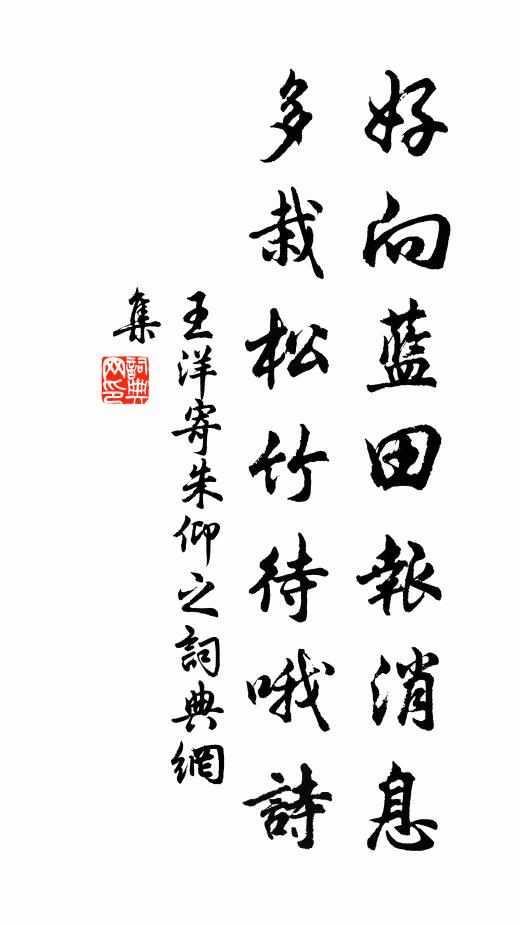 好向藍田報消息
多栽松竹待哦詩
王洋寄朱仰之詞典網
集
詞典
网印